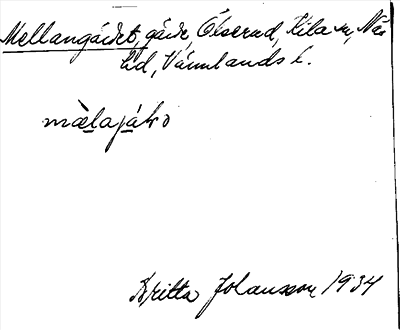 Mellangärdet, gärde, Ölserud, Kila sn, Näs
hd, Värmlands l.
mæ̀lajáḷɒ
Britta Johansson 1934